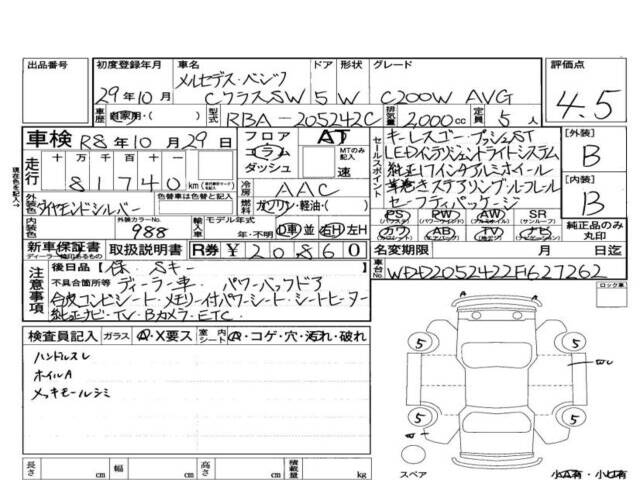 出品番号
初度登録年月 車名 ドア 形状 グレード 評価点
メルセデス・ベンツ
29年10月 CクラスSW 5 W C200W AVG 4.5
車歴 自家用・( ) 型式 RBA-205242C 排気量 2000cc 定員 5人
車検 R8年10月29日
フロア コラム ダッシュ AT MTのみ記入 速
セールスポイント
キーレスゴー・プッシュST
LEDインテリジェントライトシステム
純正17インチアルミホイール
革巻きステアリングシフトレバー
セーフティパッケージ
[外装] B
[内装] B
現在色を記入→
走行 十万 万 千 百 十 km
81740
冷房 AAC
燃料 ガソリン・軽油・( )
外装色 ダイヤモンドシルバー 色替車は色替と記入
内装色 外装カラーNo. 988
輸入車 モデル年式 年・不明 D車 並 右H 左H
PS (パワステ) PW (パワーウインド) AW (アルミホイール) SR (サンルーフ)
カワ AB TV ナビ
純正品のみ丸印
新車保証書 取扱説明書 R券 ¥20860
ディーラー捺印のあるもの
名変期限 月 日迄
注意事項
後日品 [保、Sキー ]
不具合箇所等 ディーラー車 パワーバックドア
合皮コンビシート メモリー付パワーシート シートヒーター
純正ナビ・TV Bカメラ・ETC
車台No. WDD2052422F627262
ロック車
検査員記入 ガラス A・X要ス 室内 シート A・コゲ・穴・汚れ・破れ
ハンドルスレ
ホイルA
メッキモールシミ
5 5
5 5
A
スペア
長さ cm 幅 cm 高さ cm 積載量 kg
小A有・小U有